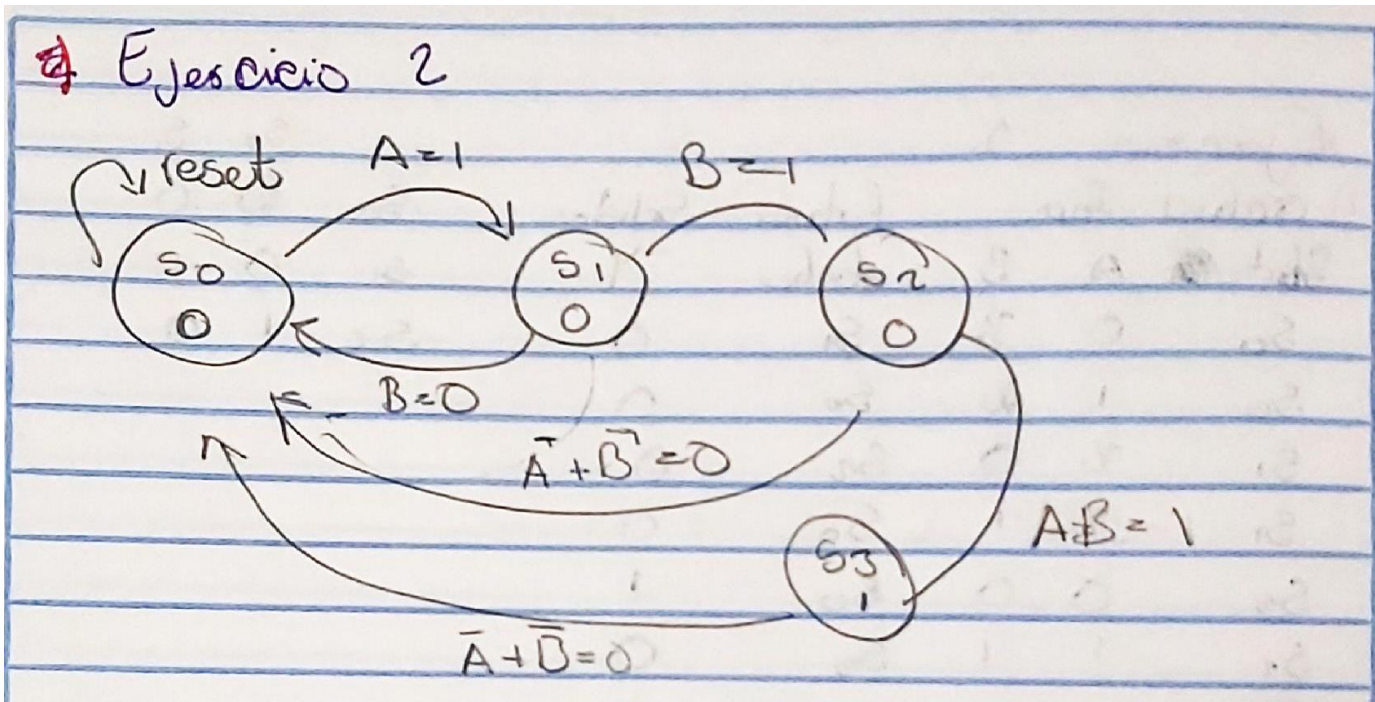 Ejercicio 2
reset A=1 B=1
S0 S1 S2
0 0 0
B=0
Ā+B̄=0
AB=1
S3
1
Ā+B̄=0